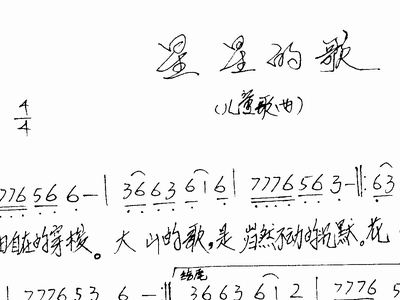 星星的歌
(儿童歌曲)
4/4
7776 566-| 3663 616| 7776 563-‖: 63
由自在的穿梭。大山的歌,是岿然不动的沉默。花
结尾
| 77765 3 6-‖ 3663 61 2 | 7776 5